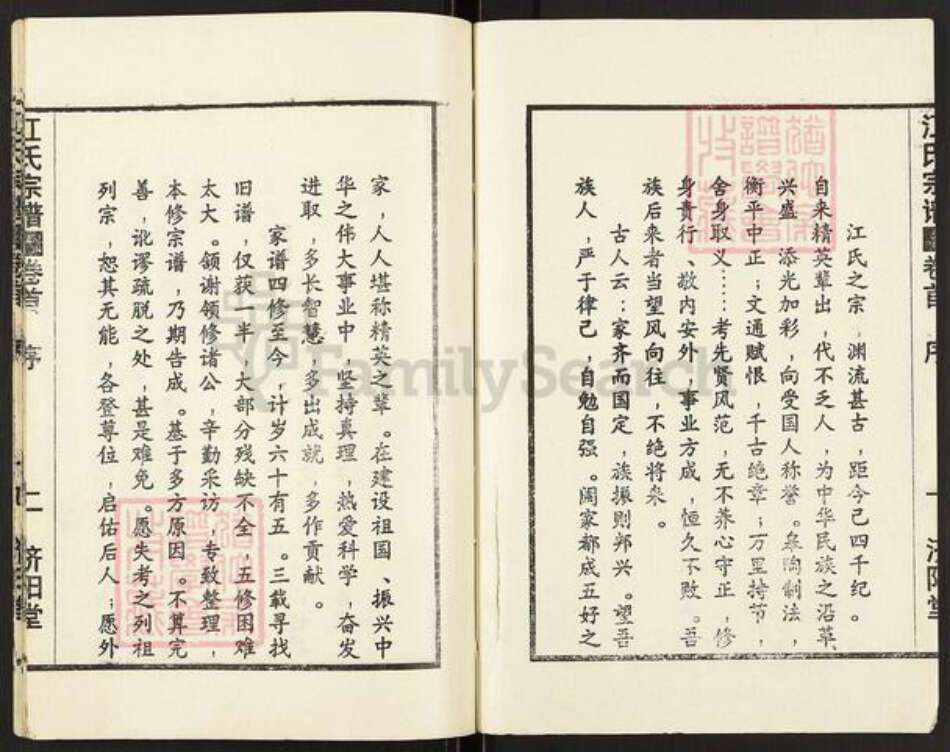 江氏之宗，渊流甚古，距今已四千纪。
自来精英辈出，代不乏人，为中华民族之沿革、
兴盛　添光加彩，向受国人称誉。皋陶制法，
衡平中正；文通赋恨，千古绝章；万里持节，
舍身取义……考先贤风范，无不养心守正，修
身贵行、敬内安外，事业方成，恒久不败。吾
族后来者当望风向往，不绝将来。
古人云：家齐而国定，族振则邦兴。望吾
族人，严于律己，自勉自强。阖家都成五好之
江氏宗谱
卷首
序
一
济阳堂
家，人人堪称精英之辈。在建设祖国、振兴中
华之伟大事业中，坚持真理，热爱科学，奋发
进取，多长智慧，多出成就，多作贡献。
家谱四修至今，计岁六十有五。三载寻找
旧谱，仅获一半，大部分残缺不全，五修困难
太大。领谢领修诸公，辛勤采访，专致整理，
本修宗谱，乃期告成。基于多方原因。不算完
善，讹谬疏脱之处，甚是难免。愿失考之列祖
列宗，恕其无能，各登尊位，启佑后人；愿外
江氏宗谱
卷首
序
二
济阳堂
FamilySearch